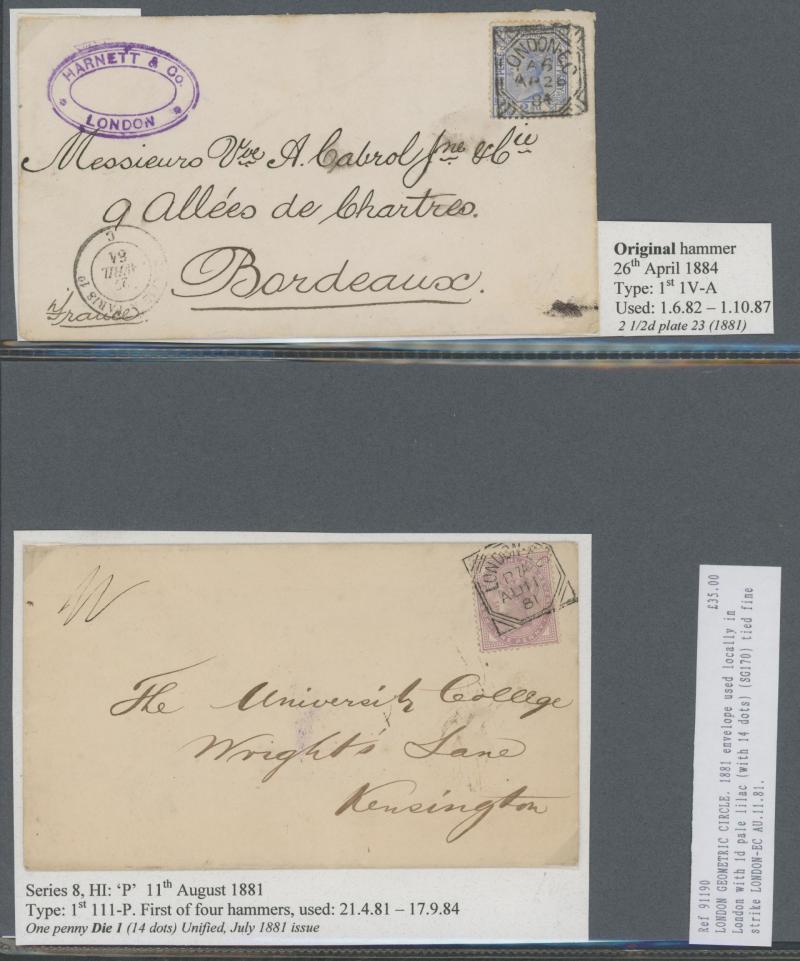 HARNETT & Co.
LONDON
LONDON·EC
A6
AP26
84
Messieurs Vve A. Cabrol Jne & Cie
9 Allées de Chartres.
Bordeaux.
France
PARIS
AVRIL
84
Original hammer
26th April 1884
Type: 1st 1V-A
Used: 1.6.82 – 1.10.87
2 1/2d plate 23 (1881)
LONDON
AU11
81
The University College
Wright's Lane
Kensington
Series 8, HI: 'P' 11th August 1881
Type: 1st 111-P. First of four hammers, used: 21.4.81 – 17.9.84
One penny Die 1 (14 dots) Unified, July 1881 issue
Ref 91190 £35.00
LONDON GEOMETRIC CIRCLE. 1881 envelope used locally in
London with 1d pale lilac (with 14 dots) (SG170) tied fine
strike LONDON-EC AU.11.81.